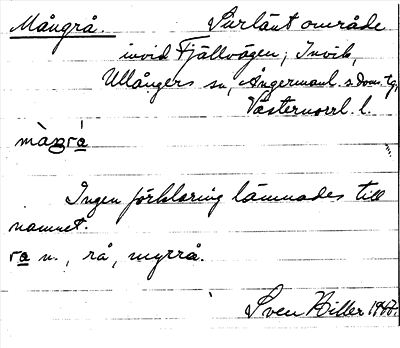 Mångrå. Surlänt område
invid Fjällvägen, Invik,
Ullångers sn, Ångermanl. s. doms. tg,
Västernorrl. l.
Ingen förklaring lämnades till
namnet.
ra n., rå, myrrå.
Sven Hiller